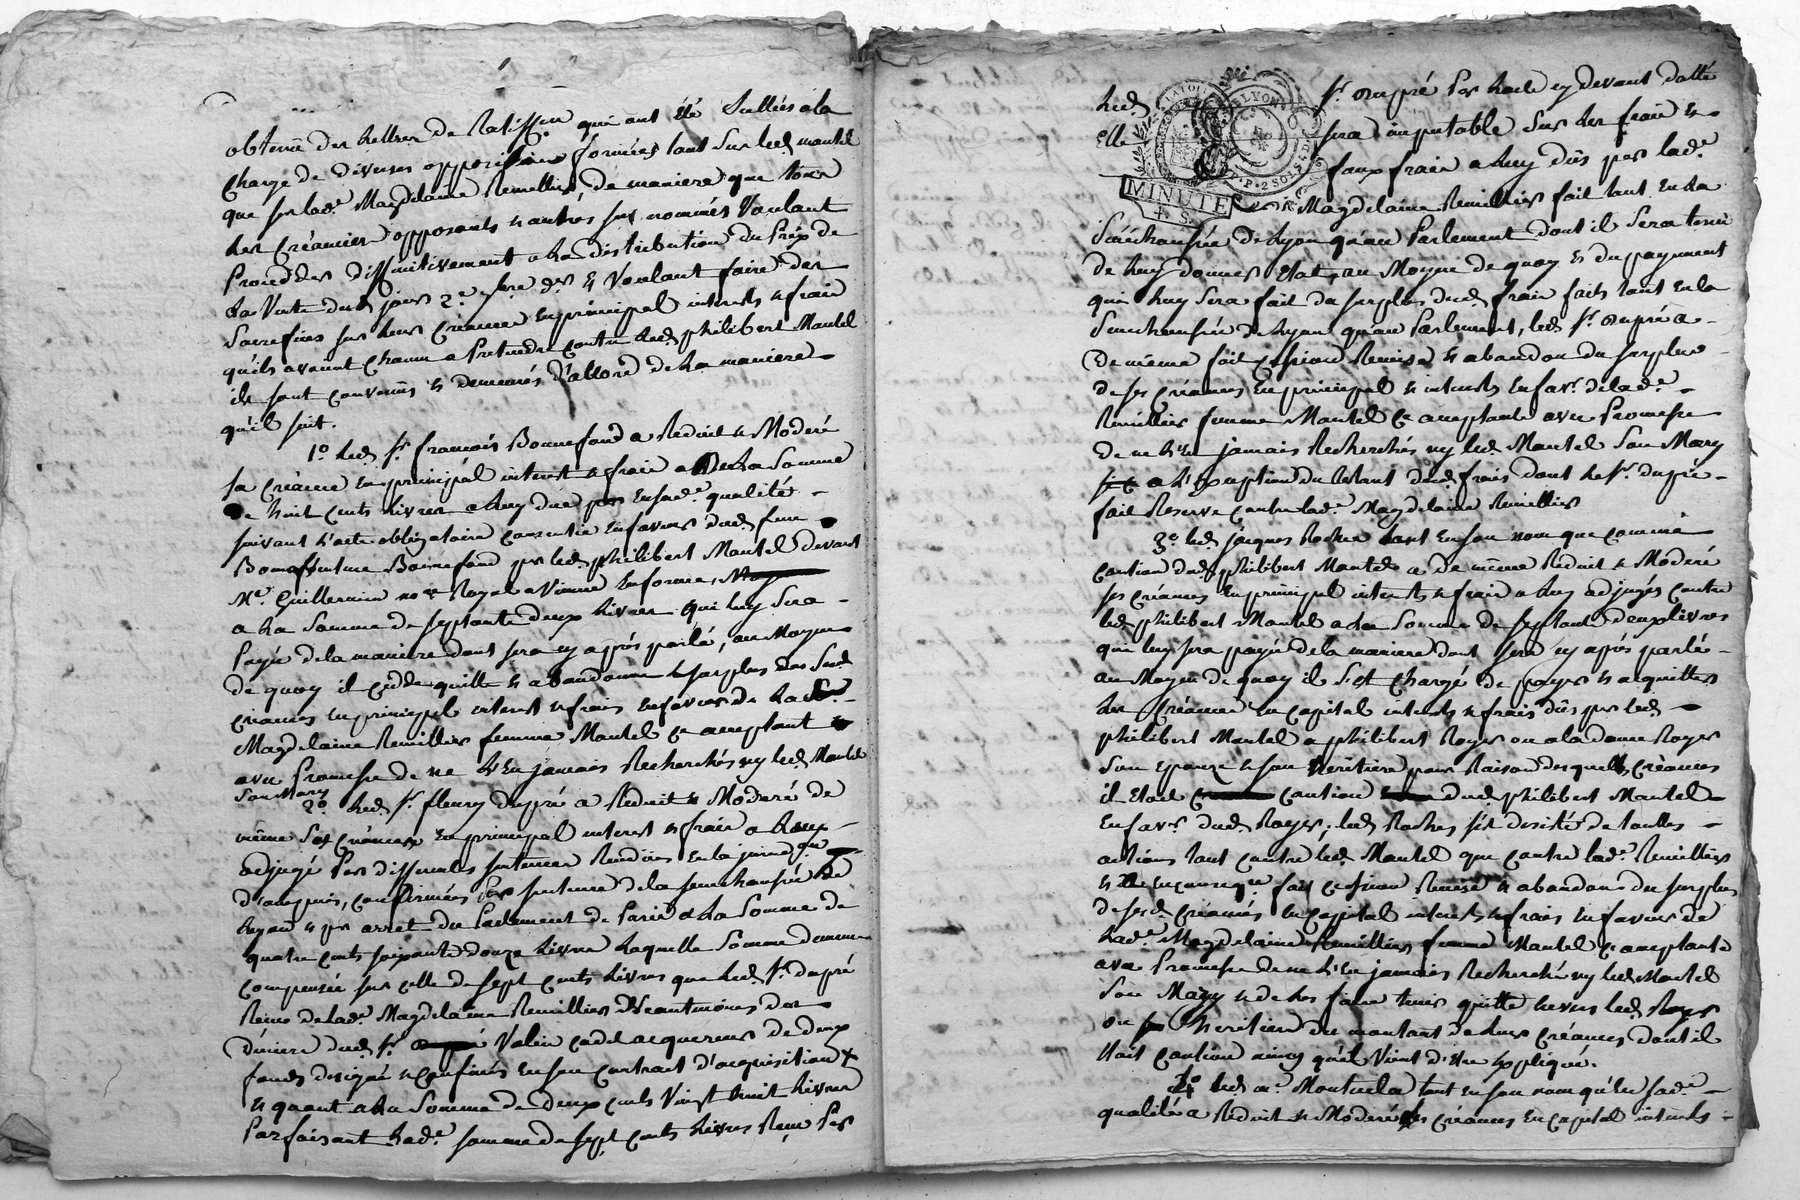 obtenu des Lettres de Ratiffon qui ont été Scellées à la
charge de diverses oppositions formées tant sur led. mantel
que sur lad.e Magdelaine Remillier, de maniere que tous
Les Créanciers opposants & autres sus nommés Voulant
Proceder diffinitivement a La distribution du Prix de
La Vente dud. jour 2.e & Voulant faire des
Sacrefices sur Leurs Créances en principal interets & frais
qu'ils avaient chacun a Pretendre contre Led. philibert Mantel
ils sont convenus & demeurés d'accord de La maniere
qu'il suit.
1.o Led. S.r francois Bonnefond a Reduit & Moderé
sa Créance en principal interest & frais a La Somme
de huit cents Livres a Luy due en sad.e qualité
suivant L'acte obligatoire consentie en faveur dud. feu
Bonnaventure Bonnefond par led. philibert Mantel devant
M.e Guillermin no.re Royal a Vienne en forme,
a La Somme de septante deux Livres qui luy sera
Payée de la maniere dont sera cy après parlé, au Moyen
de quoy il cedde quitte & abandonne le surplus des Susd.
créances en principal interest & frais en faveur de La
Magdelaine Remillier femme Mantel ce acceptant
avec Promesse de ne L'en jamais Recherchés ny led. Mantel
Son Mary
2.o Led. S.r fleury dupré a Reduit & Moderé de
même Ses Créances en principal interest & frais a Luy
adjugé Par differents sentences Rendües en la
d'ampuis, confirmées Par sentence de la senechaussée de
Lyon & par arret du Parlement de Paris a La Somme de
quatre cents soixante douze Livres Laquelle Somme demeure
compensée sur celle de sept cents Livres que Led. S.r dupré
Reine de Lad.e Magdelaine Remillier
derniere dud. S.r Valin cadet acquereur de deux
fonds designé & confinés en son contract d'acquisition
& quant a La Somme de deux cents Vingt huit Livres
Parfaisant Lad.e somme de sept cents Livres Par
Led. S.r dupré Par Lacte cy devant datté
Elle sera imputable Sur Les frais &
faux frais a Luy dûs par lad.e
MINUTE
Magdelaine Remillier fait tant en La
Sénéchaussée de Lyon qu'au Parlement dont il Sera tenu
de Luy donner Etat, au Moyen de quoy & du payement
qui Luy Sera fait du surplus dud. frais faits tant en la
Senechaussée de Lyon qu'au Parlement, led. S.r dupré a
De même fait cession Remise & abandon du surplus
de ses créances en principal & interets en fav.r de lad.e
Remillier femme Mantel ce acceptante avec Promesse
de ne L'en jamais Recherchés ny led. Mantel Son Mary
a L'exception du Restant dud. frais dont Le S.r dupré
fait Reserve contre lad.e Magdelaine Remillier
3.o led. jacques Roche tant en son nom que comme
caution dud. philibert Mantel a de même Reduit & Moderé
ses créances en principal interets & frais a Luy adjugés contre
led. philibert Mantel a La Somme de septante deux livres
qui luy sera payée de la maniere dont sera cy après parlé
au Moyen de quoy il S'est chargé de payer & acquitter
Les Créances en capital interets & frais dûs par led.
philibert Mantel a philibert Royer ou a la dame Royer
Son epouze & son heritiere pour Raison desquelles créances
il Etoit caution dud. philibert Mantel
en fav.r dud. Royer, led. Roche s'est desisté de touttes
actions tant contre led. Mantel que contre lad.e Remillier
& en consequ.ce fait cession Remise & abandon du surplus
de sesd. créances en capital interets & frais en faveur de
Lad.e Magdelaine Remillier femme Mantel ce acceptante
avec Promesse de ne L'en jamais Recherché ny led. Mantel
Son Mary & de Les faire tenir quitte envers led. Royer
ou heritiers du montant de Leurs créances dont il
Etoit caution ainsy qu'il Vient d'être Expliqué.
4.o led. m.e Montuela tant en son nom qu'en sad.e
qualité a Reduit & Moderé ses créances en capital interets